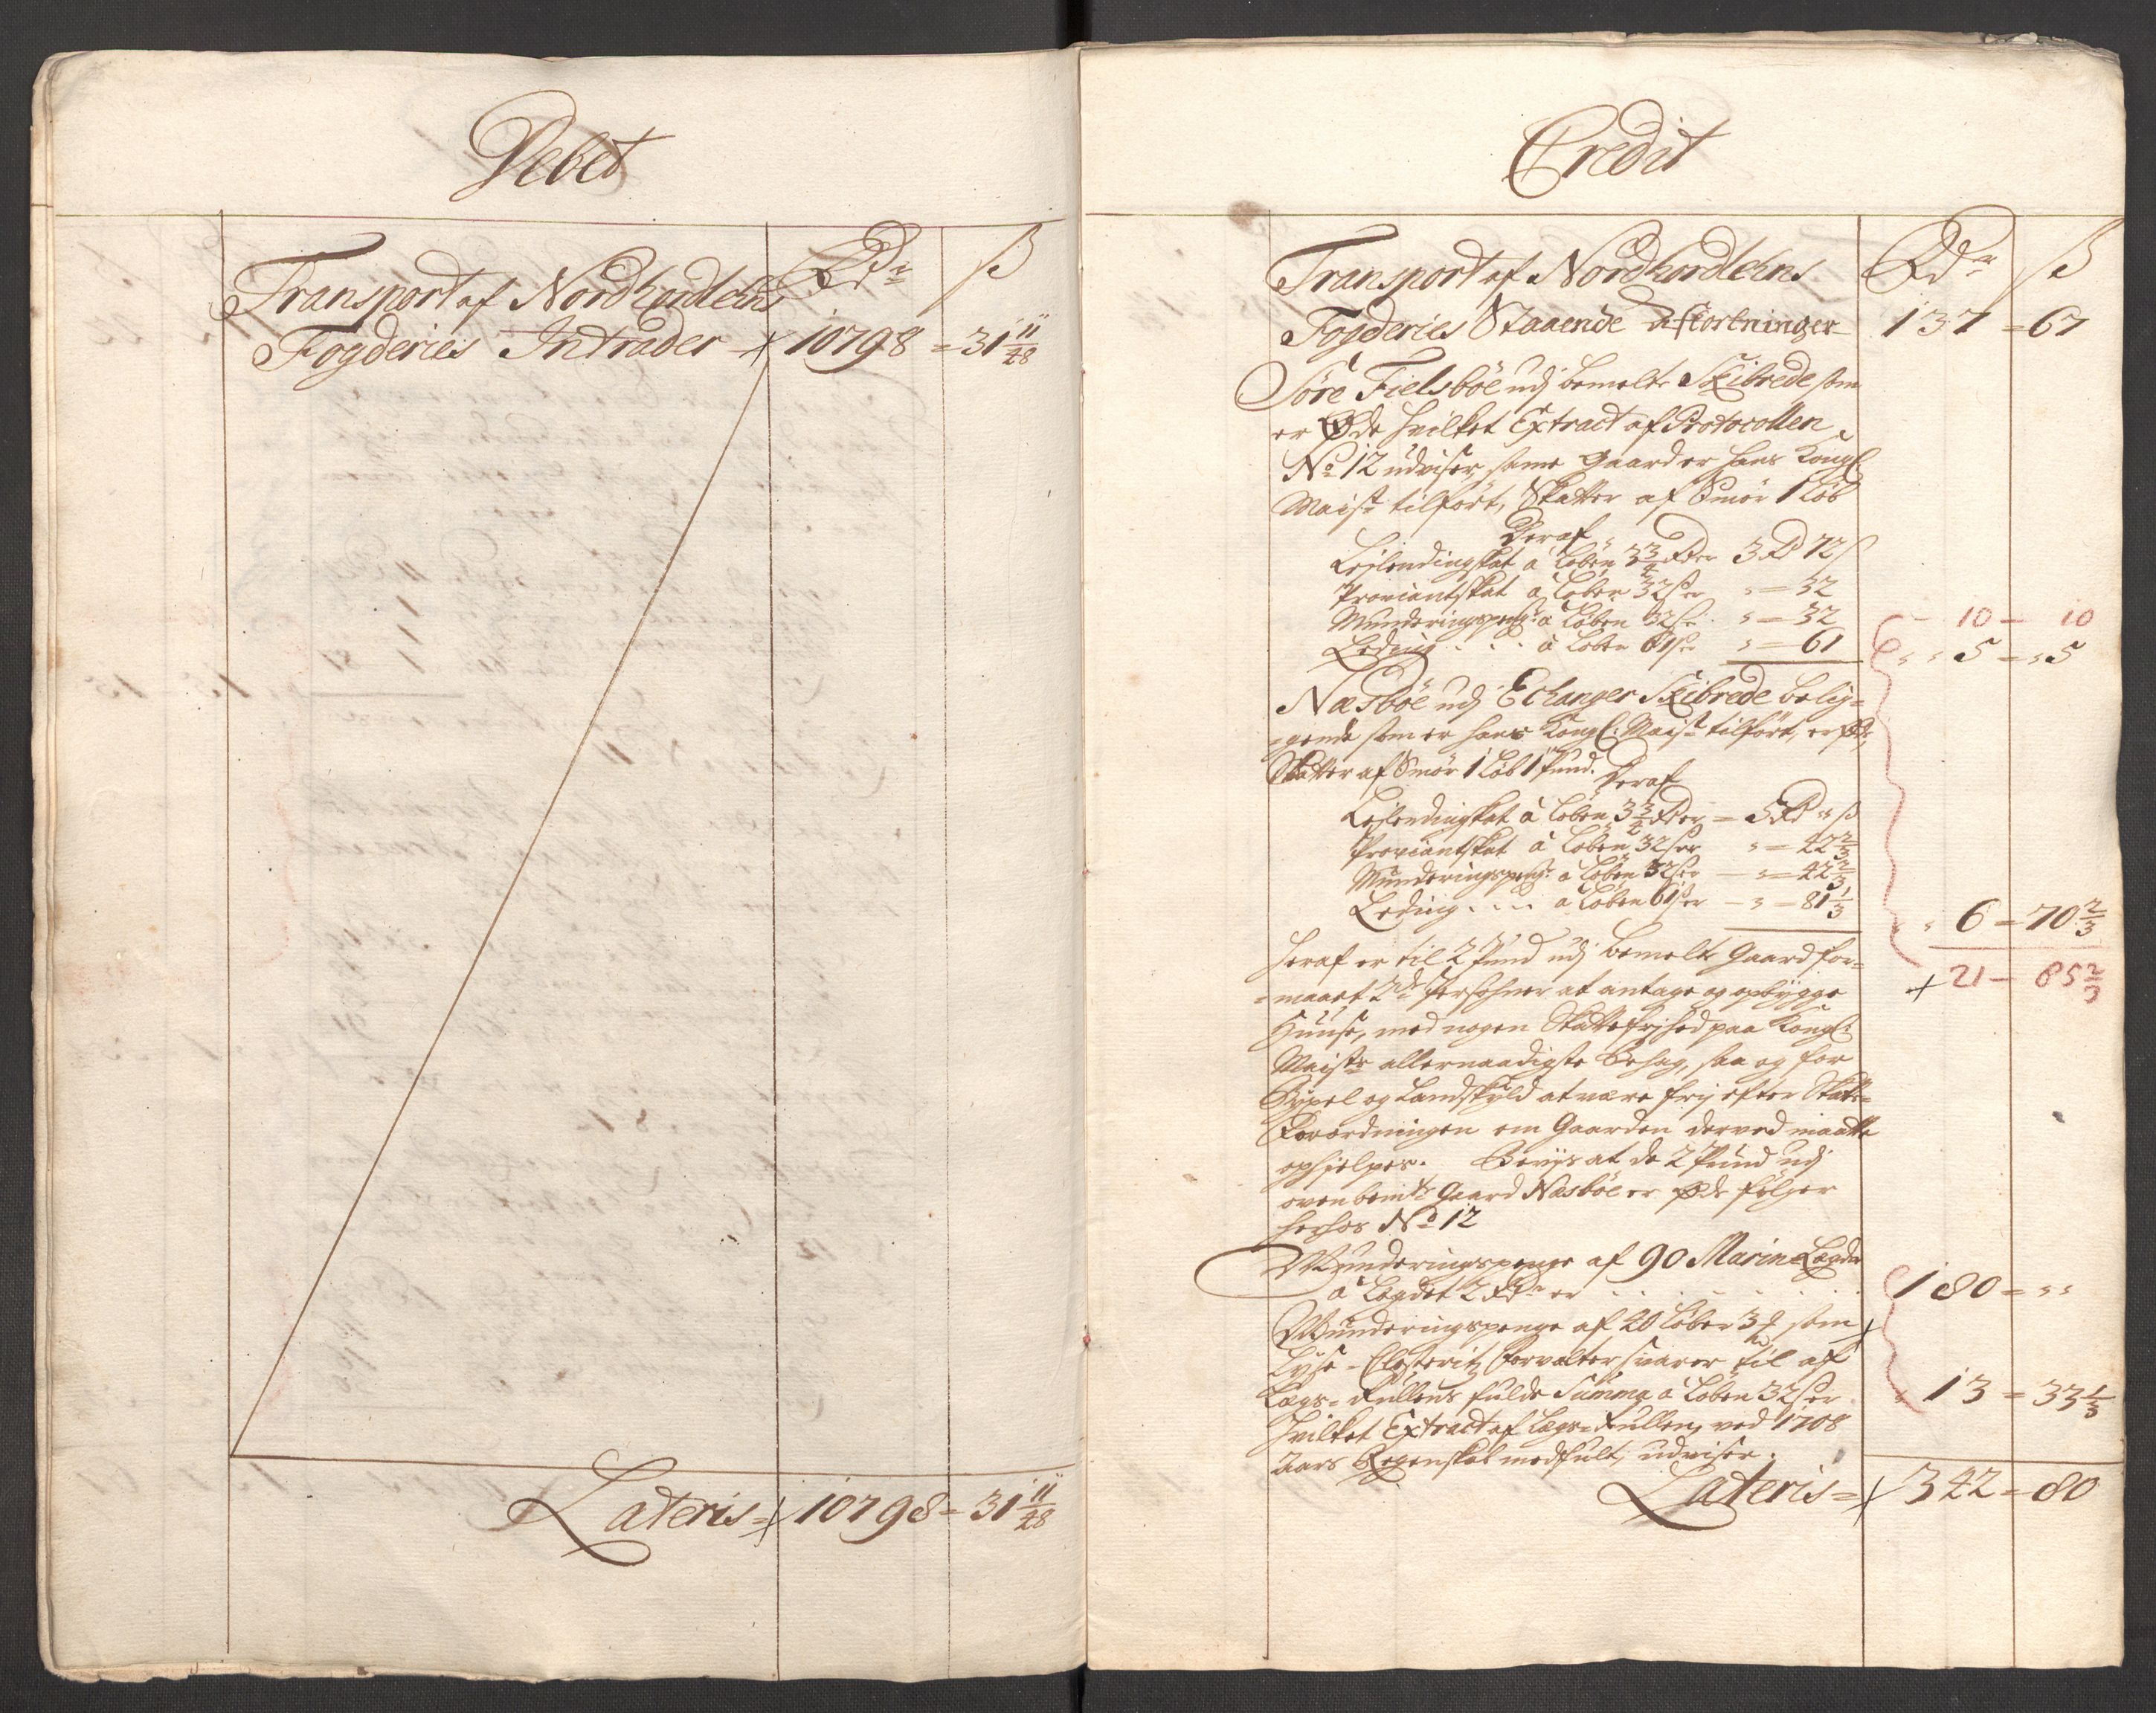 Debet
Rdr ß
Transport af Nordhordlehns
Fogderies Intrader 10798 = 31 11/48
Lateris = 10798 = 31 11/48
Credit
Rdr ß
Transport af Nordhordlehns
Fogderies Staaende Afkortninger 137 = 67
Søre Fielsböe udj bemelte Skibrede som
er Øde hvilket Extract af Protocollen
No 12 udviser, same Gaard er hans Kongl
Maist tilført, Skatter af Smör 1 Löb
Deraf
Leylendingskat à Löben 3 3/4 Rdr 3 Rd 72 ß
Proviantskat à Löben 32 ß er " = 32
Munderingspeng à Löben 32 ß " = 32
Leding . . . à Löben 61 ß " = 61
10 = 10
" 5 = " 5
Næsböe udj Echanger Skibrede belig=
=gende som er hans Kongl: Maist tilført, er øde,
Skatter af Smör 1 Löb 1 Pund. Deraf
Leylendingskat à Löben 3 3/4 Rdr er = 5 Rd " ß
Proviantskat à Löben 32 ß er " = 42 2/3
Munderingspeng à Löben 32 ß er " = 42 2/3
Leding . . . . à Löben 61 ß er " = 81 1/3
" 6 = 70 2/3
+ 21 = 85 2/3
heraf er til 2 Pund udj bemelte Gaard for=
=maaet 2de Persohner at antage og opbÿgge
Huuse, med nogen Skattefrjhed paa Kongl:
Maists allernaadigste Behag, saa og for
Bÿxel og Landskÿld at være frj efter Skatte=
Forordningen om Gaarden derved maatte
ophielpes. Beviis at de 2 Pund udj
ovenbemte Gaard Næsböe er Øde følger
herhos No 12
Munderingspenge af 90 Marine Legder
à Legdet 2 Rdr er . . . . . . 180 = " "
Munderingspenge af 40 Löber som
Lyse-Closteritz Forvalter svarer til af
Lægs-Rullens fulde Summa à Löben 32 ß er 13 = 33 1/3
hvilket Extract af Lægs-Rullen, ved 1708
Aars Regenskab medfult, udviser.
Lateris = 342 = 80